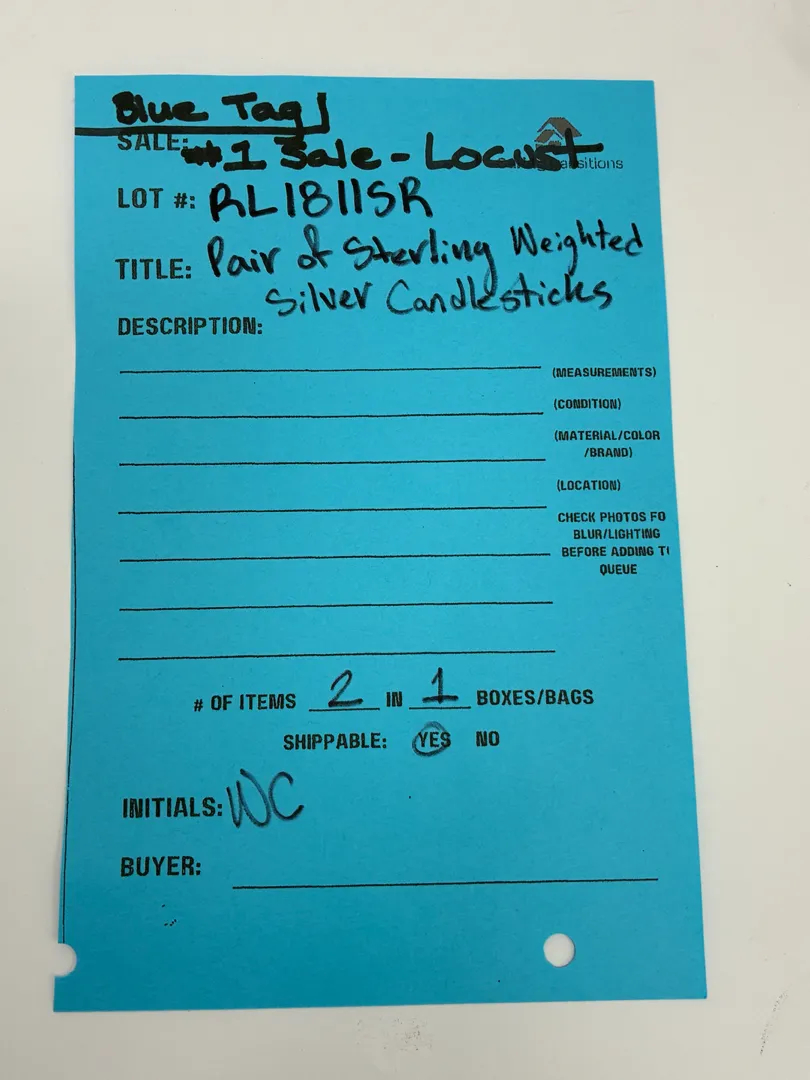 Blue Tag
SALE: #1 Sale - Locust
LOT #: RL1811SR
TITLE: Pair of Sterling Weighted
Silver Candlesticks
DESCRIPTION:
(MEASUREMENTS)
(CONDITION)
(MATERIAL/COLOR
/BRAND)
(LOCATION)
CHECK PHOTOS FO
BLUR/LIGHTING
BEFORE ADDING T
QUEUE
# OF ITEMS 2 IN 1 BOXES/BAGS
SHIPPABLE: YES NO
INITIALS: WC
BUYER: